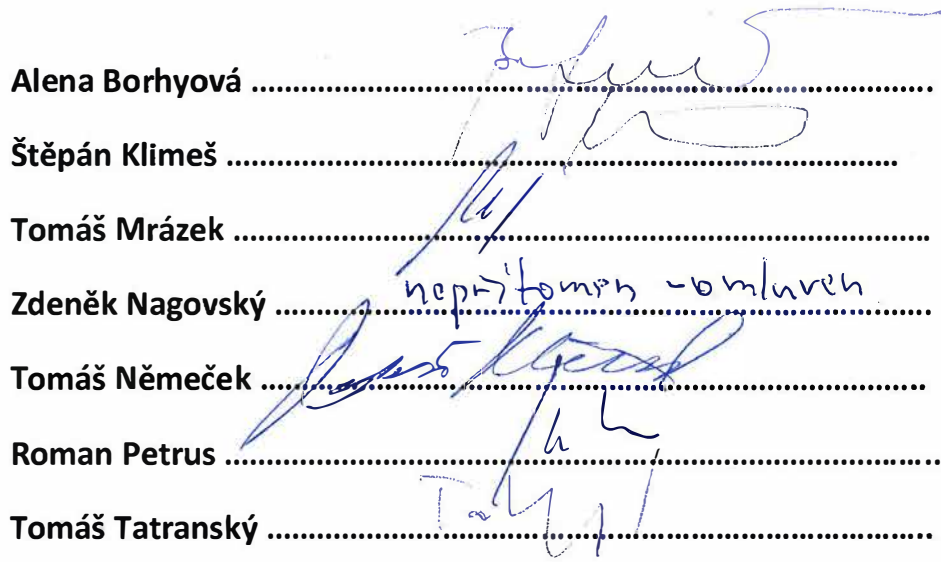 Alena Borhyová ................................................................
Štěpán Klimeš ................................................................
Tomáš Mrázek ................................................................
Zdeněk Nagovský ........nepřítomen - omluven........
Tomáš Němeček ................................................................
Roman Petrus ................................................................
Tomáš Tatranský ................................................................